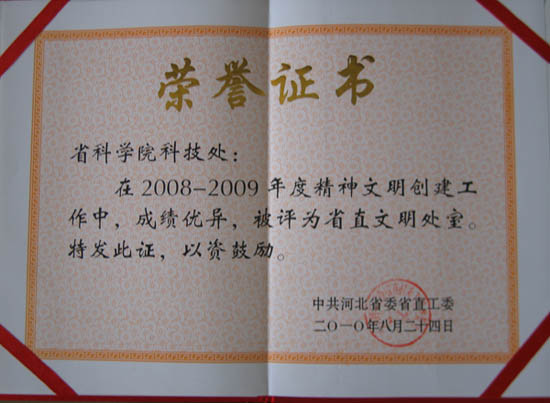 荣誉证书
省科学院科技处：
在2008-2009年度精神文明创建工
作中，成绩优异，被评为省直文明处室。
特发此证，以资鼓励。
中共河北省委省直工委
二〇一〇年八月二十四日